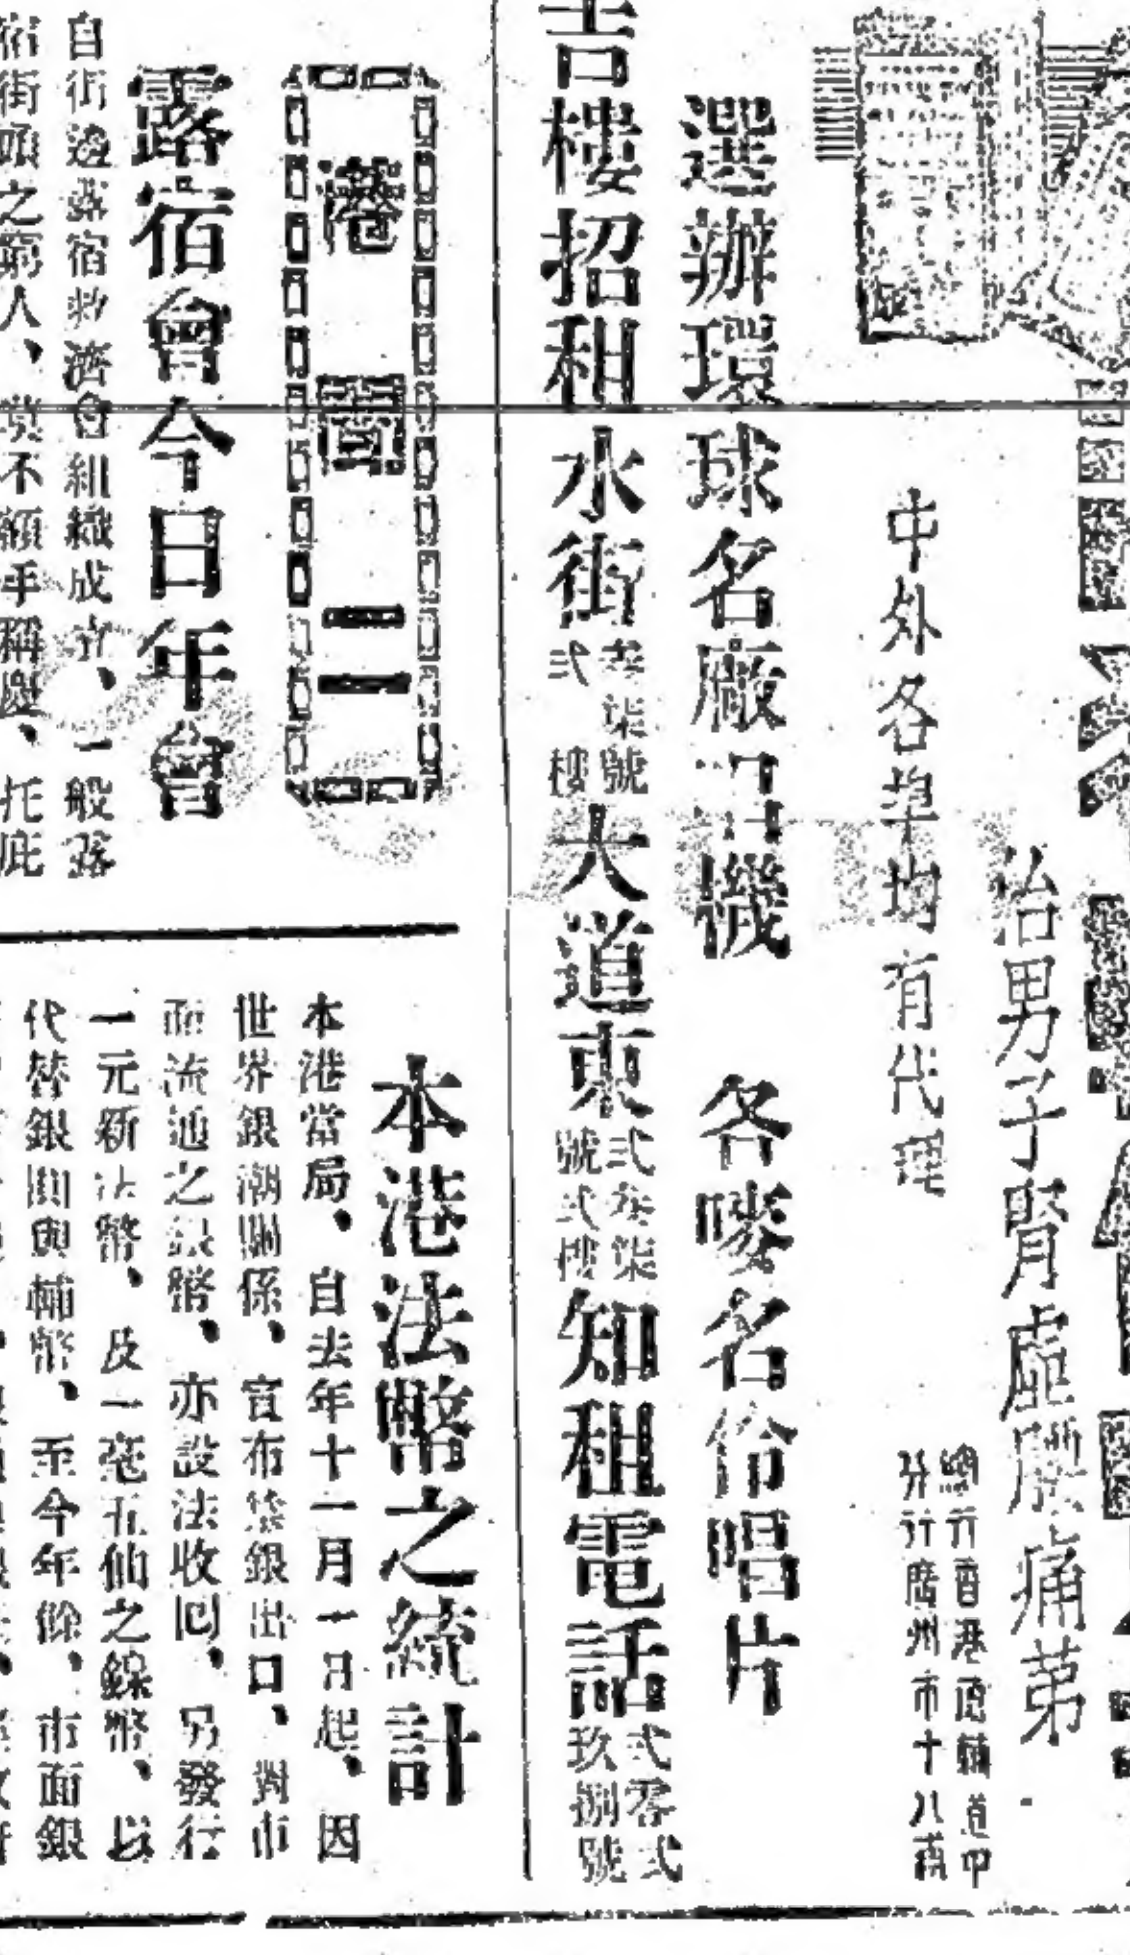 治男子腎虛腰痛
中外各埠均有代理
總行香港德輔道中
分行廣州市十八甫
選辦環球名廠唱機 各嘜名伶唱片
吉樓招租 水街叁柒號弍樓 大道東弍叁柒號弍樓 知租電話弍零弍玖捌號
港聞二
露宿會今日年會
自街邊露宿救濟會組織成立、一般露
宿街頭之窮人、莫不額手稱慶、托庇
本港法幣之統計
本港當局、自去年十一月一日起、因
世界銀潮關係、宣布禁銀出口、對市
面流通之銀幣、亦設法收回、另發行
一元新法幣、及一毫五仙之鎳幣、以
代替銀圓與輔幣、至今年餘、市面銀